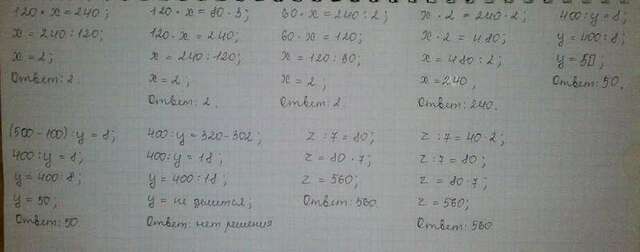 120 · x = 240;
x = 240 : 120;
x = 2;
Ответ: 2.
120 · x = 80 · 3;
120 · x = 240;
x = 240 : 120;
x = 2;
Ответ: 2.
60 · x = 240 : 2;
60 · x = 120;
x = 120 : 60;
x = 2;
Ответ: 2.
x · 2 = 240 · 2;
x · 2 = 480;
x = 480 : 2;
x = 240,
Ответ: 240.
400 : y = 8;
y = 400 : 8;
y = 50;
Ответ: 50.
(500 - 100) : y = 8;
400 : y = 8;
y = 400 : 8;
y = 50;
Ответ: 50
400 : y = 320 - 302;
400 : y = 18;
y = 400 : 18;
y = не делится;
Ответ: нет решения
z : 7 = 80;
z = 80 · 7;
z = 560;
Ответ: 560
z : 7 = 40 · 2;
z : 7 = 80;
z = 80 · 7;
z = 560;
Ответ: 560